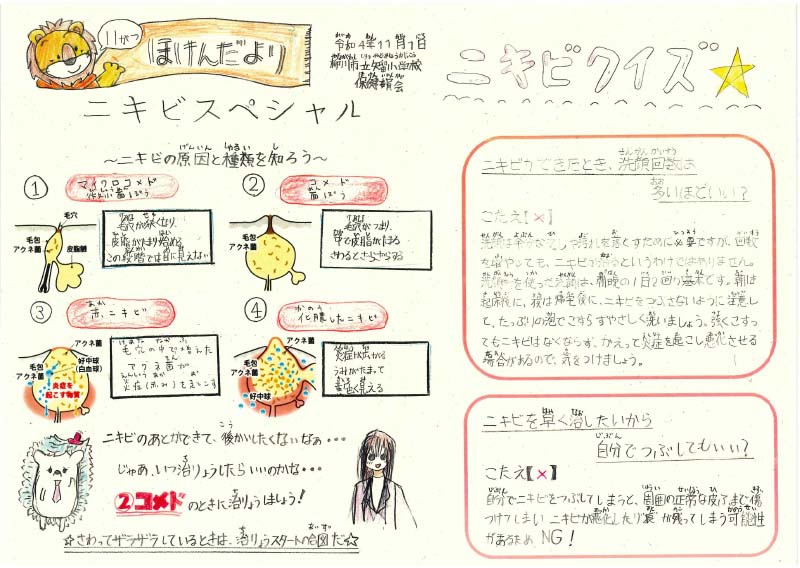 11がつ
ほけんだより
令和4年11月1日
柳川市立矢留小学校
保健委員会
ニキビスペシャル
～ニキビの原因と種類を知ろう～
① マイクロコメド
毛穴
毛包
アクネ菌
皮脂腺
毛穴が狭くなり
皮脂がたまり始める
この段階では目に見えない
② コメド
毛包
アクネ菌
毛穴がつまり、
中で皮脂がたまる
さわるとざらざらする
③ 赤ニキビ
アクネ菌
毛包
アクネ菌
好中球
(白血球)
炎症を
起こす物質
毛穴の中で増えた
アクネ菌が
炎症(赤み)をおこす
④ 化膿したニキビ
毛包
アクネ菌
好中球
炎症が広がる
うみがたまって
黄色く見える
ニキビのあとができて、後かいしたくないなぁ・・・
じゃあ、いつ治りょうしたらいいのかな・・・
②コメドのときに治りょうしましょう!
☆さわってザラザラしているときは、治りょうスタートの合図だ☆
ニキビクイズ
ニキビができたとき、洗顔回数は
多いほどいい?
こたえ【×】
洗顔は余分な皮しや汚れを落とすために必要ですが、回数
を増やしても、ニキビが治るというわけではありません。
洗顔料を使った洗顔は、朝晩の1日2回が基本です。朝は
起床後に、夜は帰宅後に、ニキビをつぶさないように注意し
て、たっぷりの泡でこすらずやさしく洗いましょう。強くこすっ
てもニキビはなくならず、かえって炎症を起こし悪化させる
場合があるので、気をつけましょう。
ニキビを早く治したいから
自分でつぶしてもいい?
こたえ【×】
自分でニキビをつぶしてしまうと、周囲の正常な皮ふまで傷
つけてしまい ニキビが悪化したり 痕が残ってしまう可能性
があるため、NG!